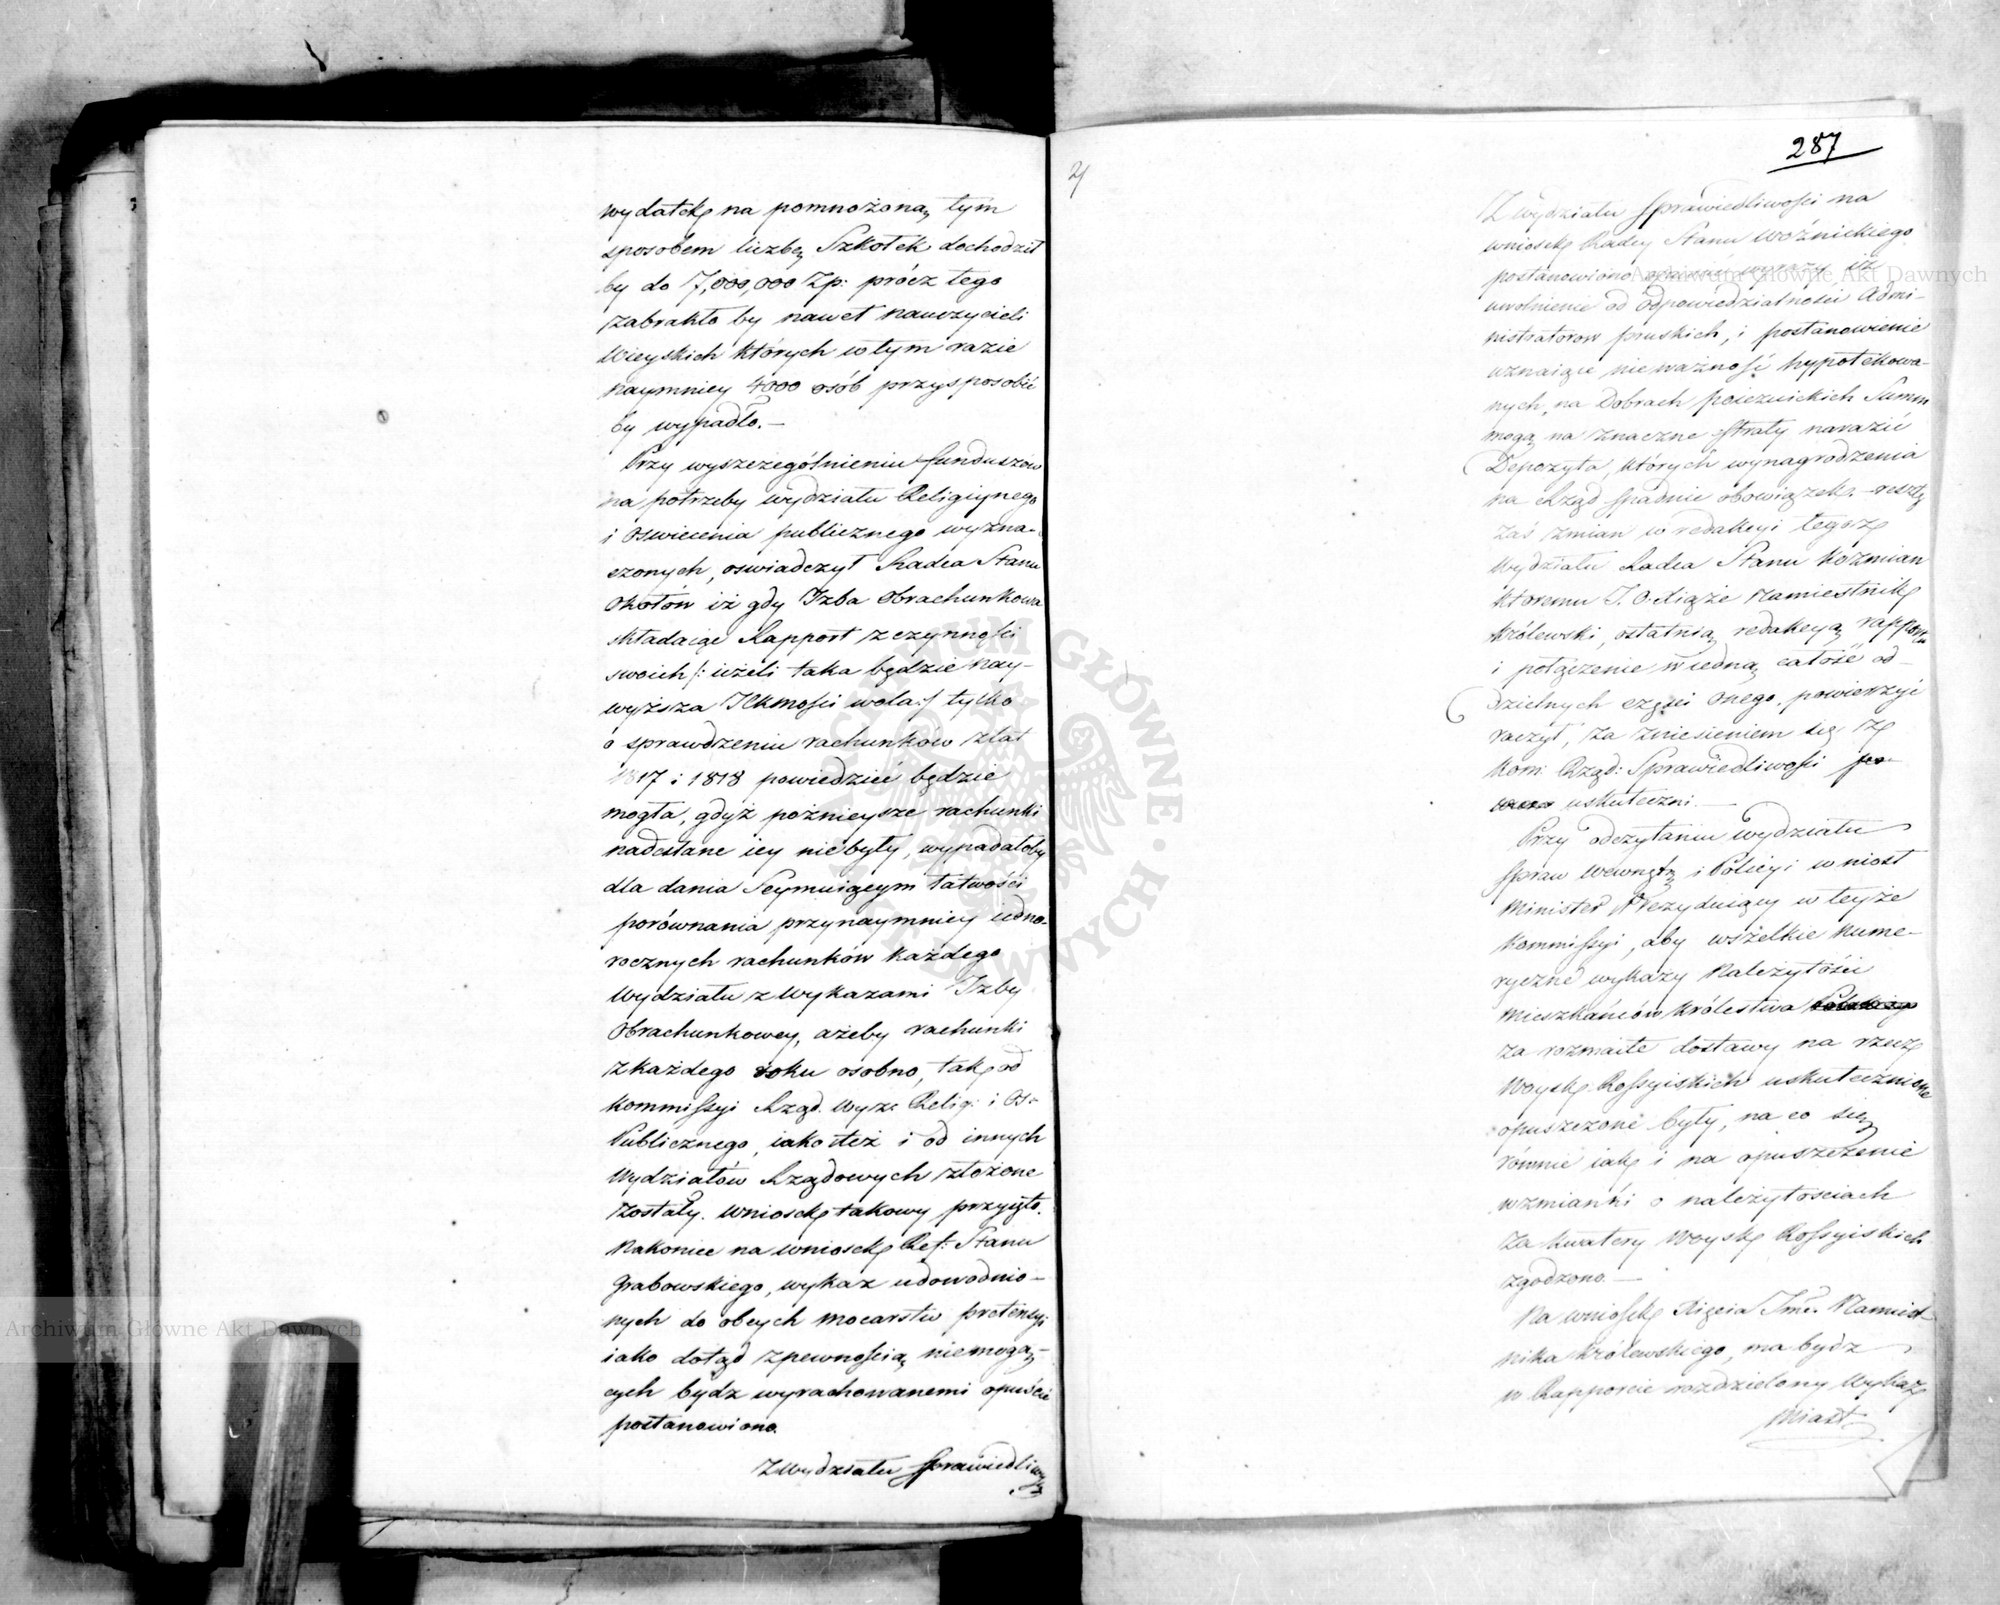 wydatek na pomnożoną tym
sposobem liczbę Szkołek dochodził
by do 7,000,000 Zp: prócz tego
zabrakło by nawet nauczycieli
Wieyskich których w tym razie
naymniey 4000 osób przysposobić
by wypadło.—
Przy wyszczególnieniu funduszów
na potrzeby wydziału Religiynego
i Oswiecenia publicznego wyzna-
czonych, oswiadczył Radca Stanu
Okołow iż gdy Izba Obrachunkowa
składaiąc Rapport z czynności
swoich /: ieżeli taka będzie nay-
wyższa JKMości wola :/ tylko
o sprawdzeniu rachunkow z lat
1817 i 1818 powiedzieć będzie
mogła, gdyż poźnieysze rachunki
nadesłane iey nie były, wypadałoby
dla dania Seymuiącym łatwości
porównania przynaymniey iedno-
rocznych rachunków każdego
Wydziału z Wykazami Izby
Obrachunkowey, ażeby rachunki
z każdego roku osobno, tak od
Kommissyi Rząd. Wyzn: Relig: i Os:
Publicznego, iako też i od innych
Wydziałów Rządowych złożone
zostały. Wniosek takowy przyięto.
Nakoniec na wniosek Ref: Stanu
Grabowskiego, wykaz udowodnio-
nych do obcych mocarstw pretensyi
iako dotąd z pewnością niemogą-
cych bydz wyrachowanemi opuścić
postanowiono.
Z Wydziału Sprawiedliwości
287
Z Wydziału Sprawiedliwości na
wniosek Radcy Stanu Woźnickiego
postanowiono wyrazy iż
uwolnienie od odpowiedzialności Admi-
nistratorow pruskich, i postanowienie
uznaiące nieważność hypotekowa-
nych, na Dobrach Summ
mogą na znaczne straty narazić
Depozyta, których wynagrodzenia
na Rząd spadnie obowiązek. – resztę
zaś zmian w redakcyi tegoż
Wydziału Radca Stanu Koźmian
ktoremu J. O. Xiąże Namiestnik
Królewski, ostatnią redakcyą rapportu
i połączenie w iedną całość od-
dzielnych części onego, powierzyć
raczył, za zniesieniem się z
Kom: Rząd: Sprawiedliwości
uskuteczni.—
Przy odczytaniu Wydziału
Spraw Wewnętrz i Policyi wniosł
Minister Prezyduiący w teyże
Kommissyi, aby wszelkie nume-
ryczne wykazy Należytości
Mieszkańców Królestwa Polskiego
za rozmaite dostawy na rzecz
Woysk Rossyiskich uskutecznione
opuszczone były, na co się
równie iak i na opuszczenie
wzmianki o należytosciach
za kwatery Woysk Rossyiskich
zgodzono.—
Na wniosek Xięcia Jmć. Namiest-
nika Królewskiego, ma bydz
w Rapporcie rozdzielony Wykaz
Miast
Archiwum Główne Akt Dawnych
Archiwum Główne Akt Dawnych